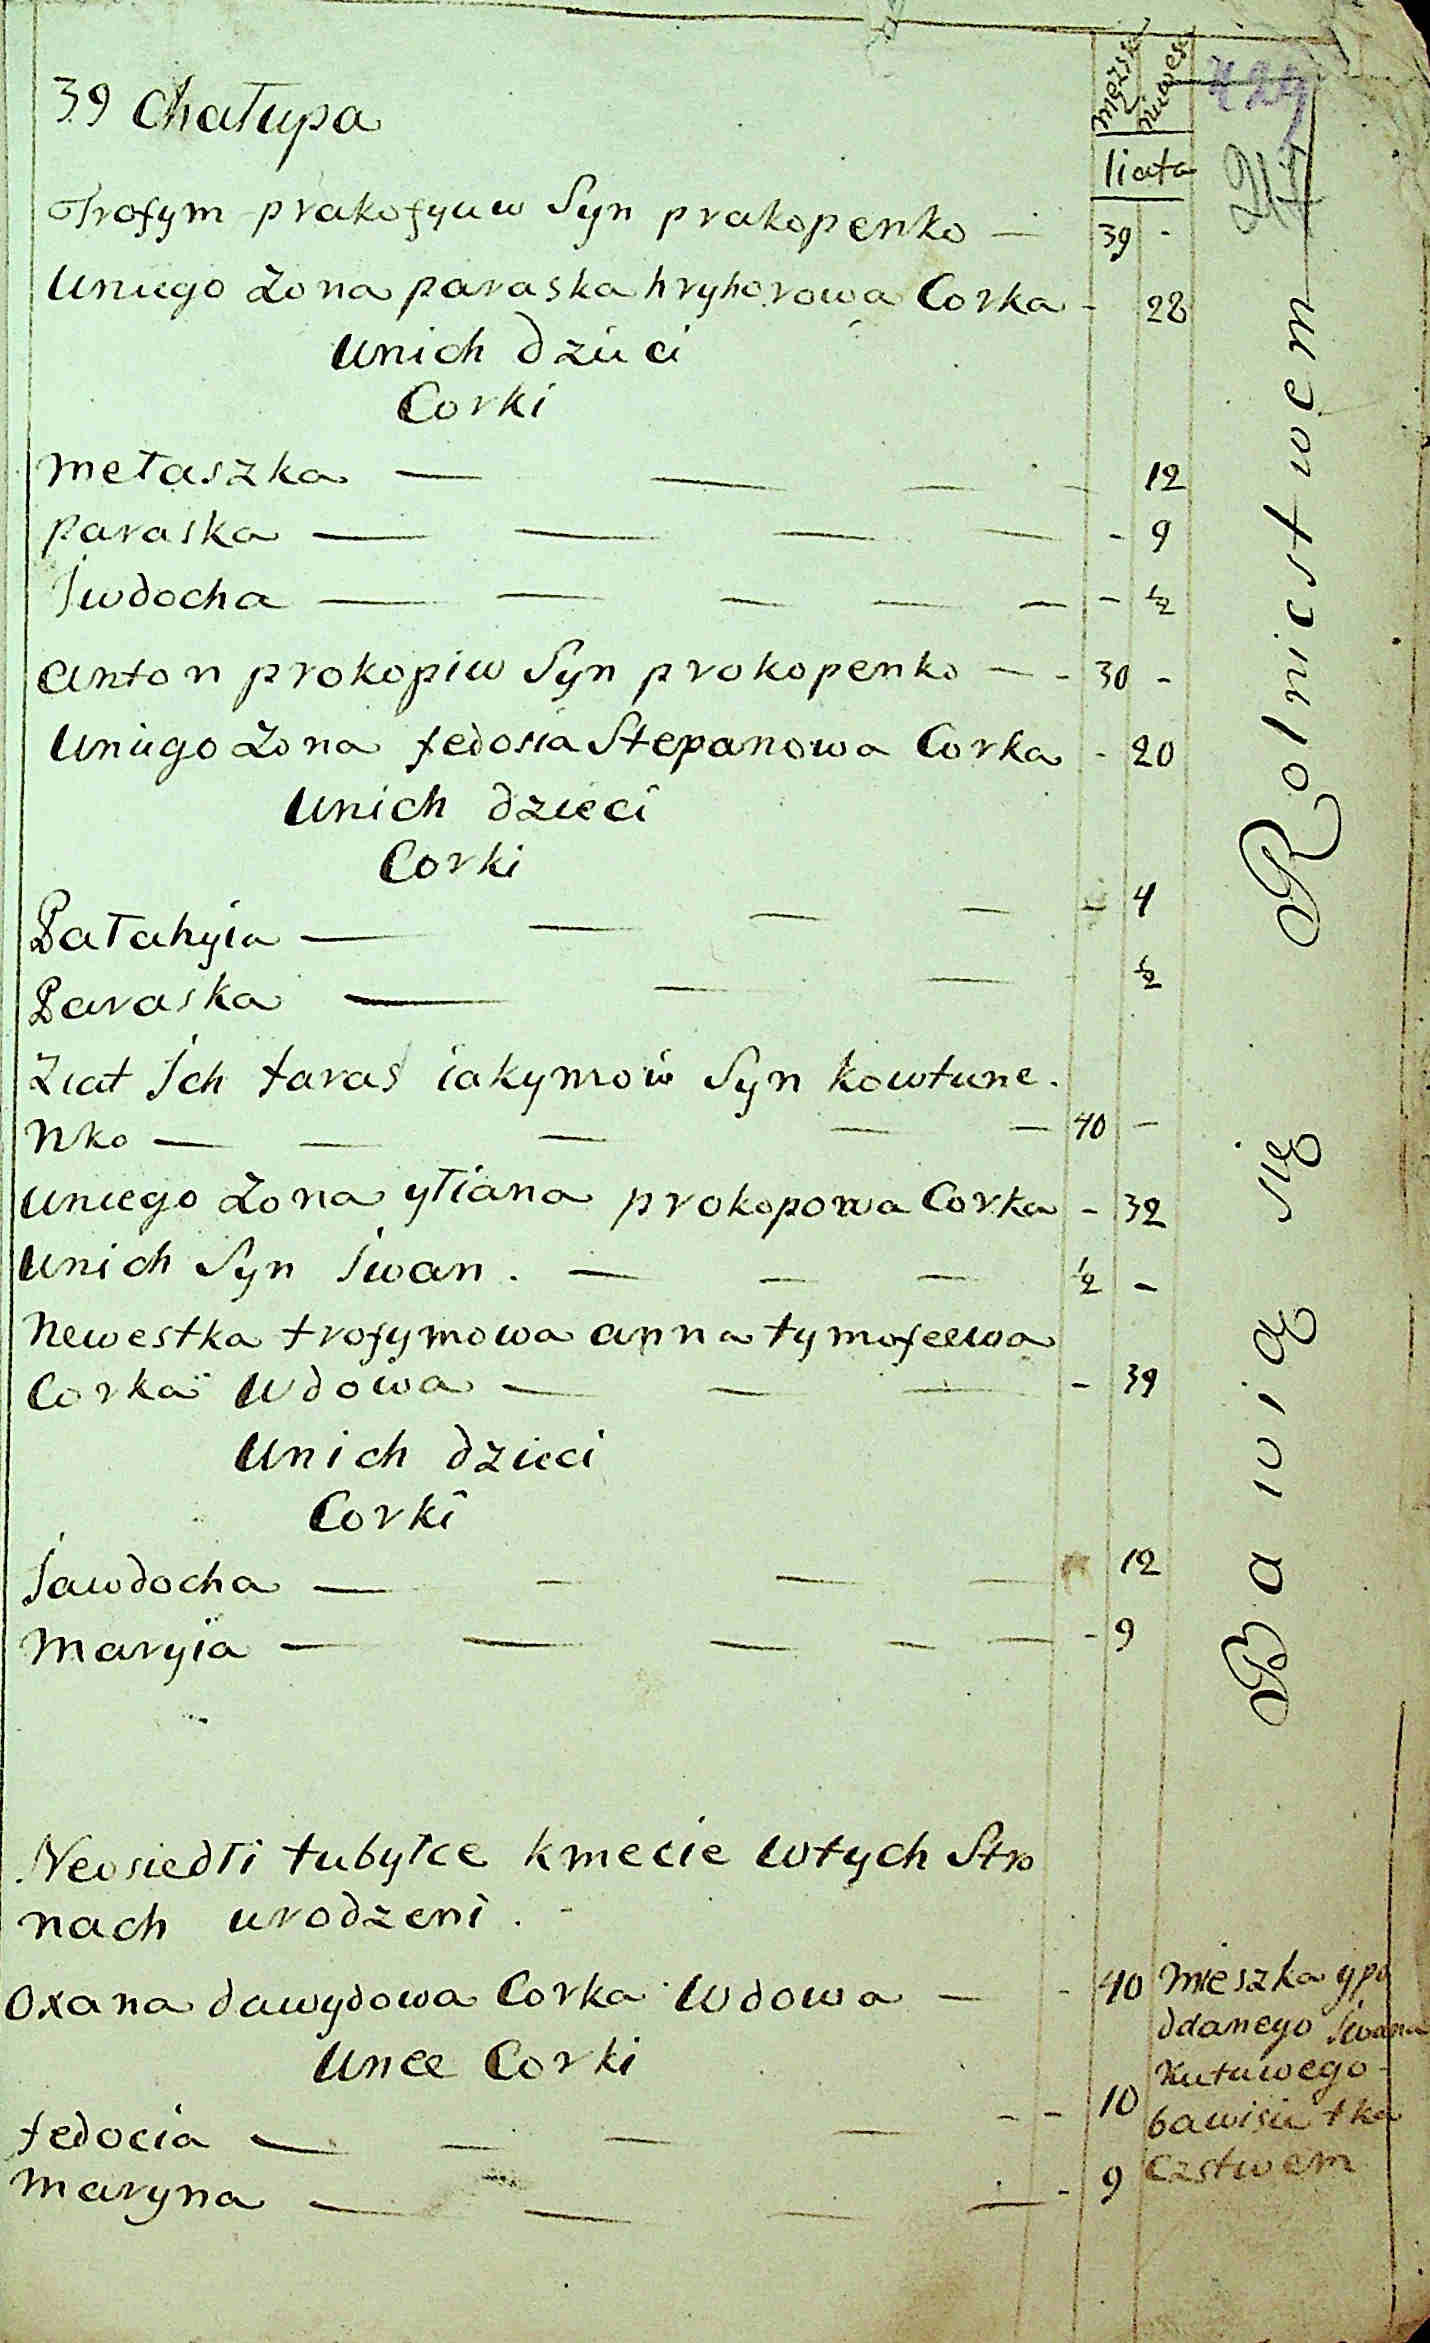 39 chałupa
mężsk niewesk
429
liata
Trofym prakofyuw Syn prakopenko — 39 -
Uniego Żona paraska hryhorowa Corka - 28
Unich dzieci
Corki
metaszka — — — - 12
paraska — — — — - 9
Jwdocha — — — — — - ½
anton prokopiw Syn prokopenko — - 30 -
Uniego Żona fedosia Stepanowa Corka - 20
Unich dzieci
Corki
Pałahyia — — — — - 4
Paraska — — — ½
Ziat Jch taras iakymow Syn kowtune.
Nko — — — — — 40 —
Uniego Żona yłiana prokopowa Corka - 32
Unich Syn iwan. — — — ½ -
Newestka trofymowa anna tymofeewa
Corka Wdowa — — — - 39
Unich dzieci
Corki
Jawdocha — — — — 12
Maryia — — — — — - 9
Bawią się Rolnicstwem
Neosiedłi tubyłce kmecie wtych Stro
nach urodzeni.
Oxana dawydowa Corka Wdowa — - 40
Unee Corki
fedocia — — — — - - 10
Maryna — — — — - 9
Mieszka ypo
ddanego iwana
Kutuwego
bawisie tka
czstwem